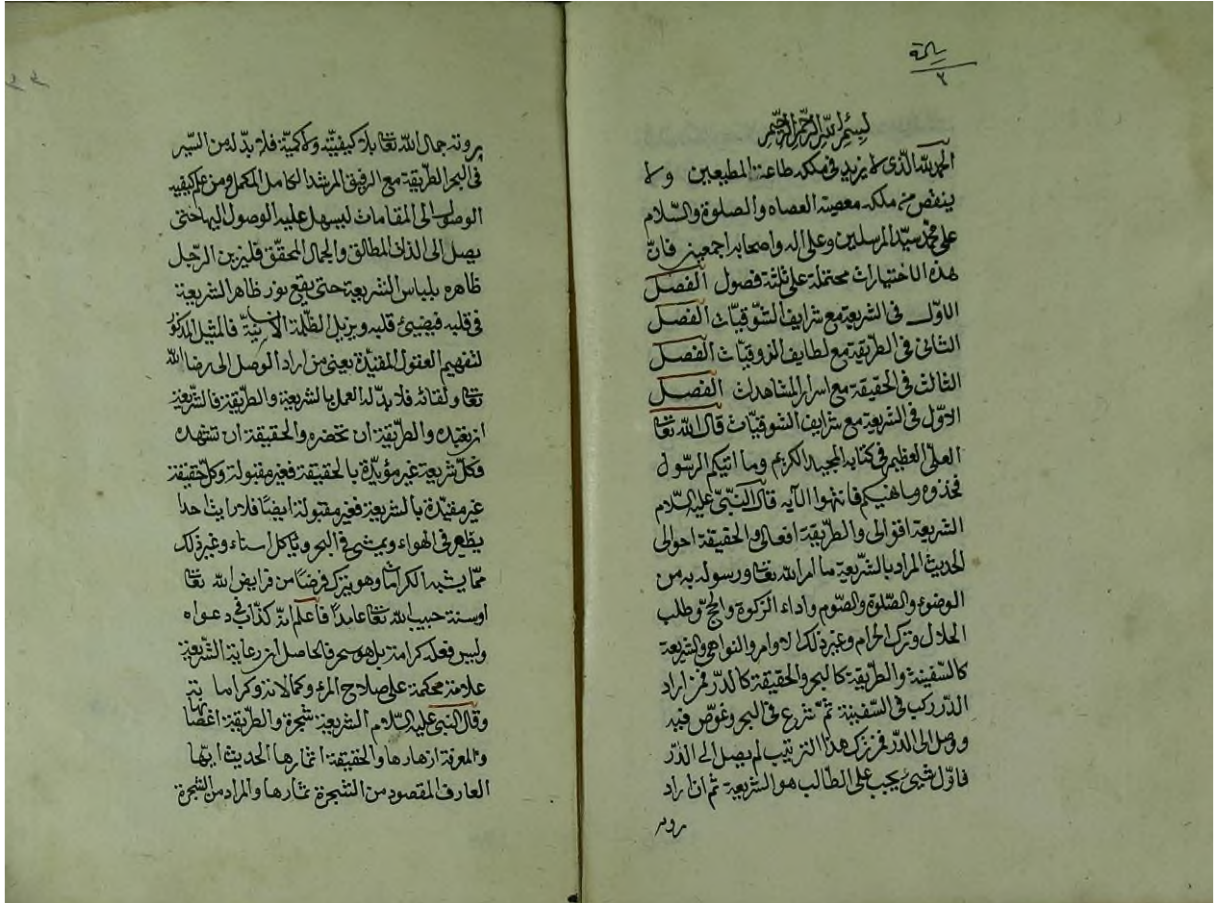 ٢
بسم الله الرحمن الرحيم
الحمد لله الذى لا يزيد فى ملكه طاعة المطيعين ولا
ينقص من ملكه معصية العصاه والصلوة والسّلام
على محمد سيّد المرسلين وعلى اله واصحابه اجمعين فانّ
هذه الاختيارات محتملة على ثلثة فصول الفصل
الاوّل فى الشريعة مع شرايف الشّوقيّات الفصل
الثانى فى الطريقة مع لطايف الذوقيّات الفصل
الثالث فى الحقيقة مع اسرار المشاهدات الفصل
الاوّل فى الشريعة مع شرايف الشوقيّات قال الله تعا
العلىّ العظيم فى كتابه المجيد الكريم وما اتيكم الرسول
فخذوه وما نهيكم فانتهوا الآيه قال النّبىّ عليه السّلام
الشريعة اقوالى والطّريقة افعالى والحقيقة احوالى
الحديث المراد بالشّريعة ما امر الله تعا ورسوله به من
الوضوء والصّلوة والصّوم واداء الزكوة والحجّ وطلب
الحلال وترك الحرام وغير ذلك الاوامر والنواهى والشريعة
كالسّفينة والطريقة كالبحر والحقيقة كالدّر فمن اراد
الدّر ركب فى السّفينة ثمّ شرع فى البحر وغوّص فيه
ووصل الى الدّر فمن ترك هذا الترتيب لم يصل الى الدّر
فاوّل شيئ يجب على الطالب هو الشريعة ثم ان اراد
روية
روية جمال الله تعا بلا كيفيّة ولا كميّة فلا بدّ له من السّير
فى البحر الطريقة مع الرفيق المرشد الكامل المكمل ومن علم كيفية
الوصول الى المقامات ليسهل عليه الوصول اليها حتى
يصل الى الذات المطالق والجمال المحقّق فليزين الرّجل
ظاهره بلباس الشريعة حتى يقع نور ظاهر الشريعة
فى قلبه فيضيئ قلبه ويزيل الظّلمة فالمثيل المذكور
لتفهيم العقول المقيّدة يعنى من اراد الوصل الى رضا الله
تعا ولقائه فلا بدّ له العمل بالشريعة والطريقة فالشّريعة
ان تعبده والطّريقة ان تحضره والحقيقة ان تشهده
فكلّ شريعة غير مؤيّدة بالحقيقة فغير مقبولة وكلّ حقيقة
غير مقيّدة بالشريعة فغير مقبولة ايضًا فلا رايت احدا
يطير فى الهواء ويمشى فى البحر وياكل وغير ذلك
ممّا يشبه الكرامات وهو يترك فرضًا من فرايض الله تعا
او سنة حبيب الله تعا عامدًا فاعلم انّه كذّاب فى دعواه
وليس فعله كرامة بل هو سحر فالحاصل ان رعاية الشّريعة
علامة محكمة على صلاح المرء وكمالاته وكراماته
وقال النبى عليه السّلام الشريعة شجرة والطريقة اغصانها
والمعرفة ازهارها والحقيقة اثمارها الحديث ايّها
العارف المقصود من الشجرة ثمارها والمراد من الشجرة